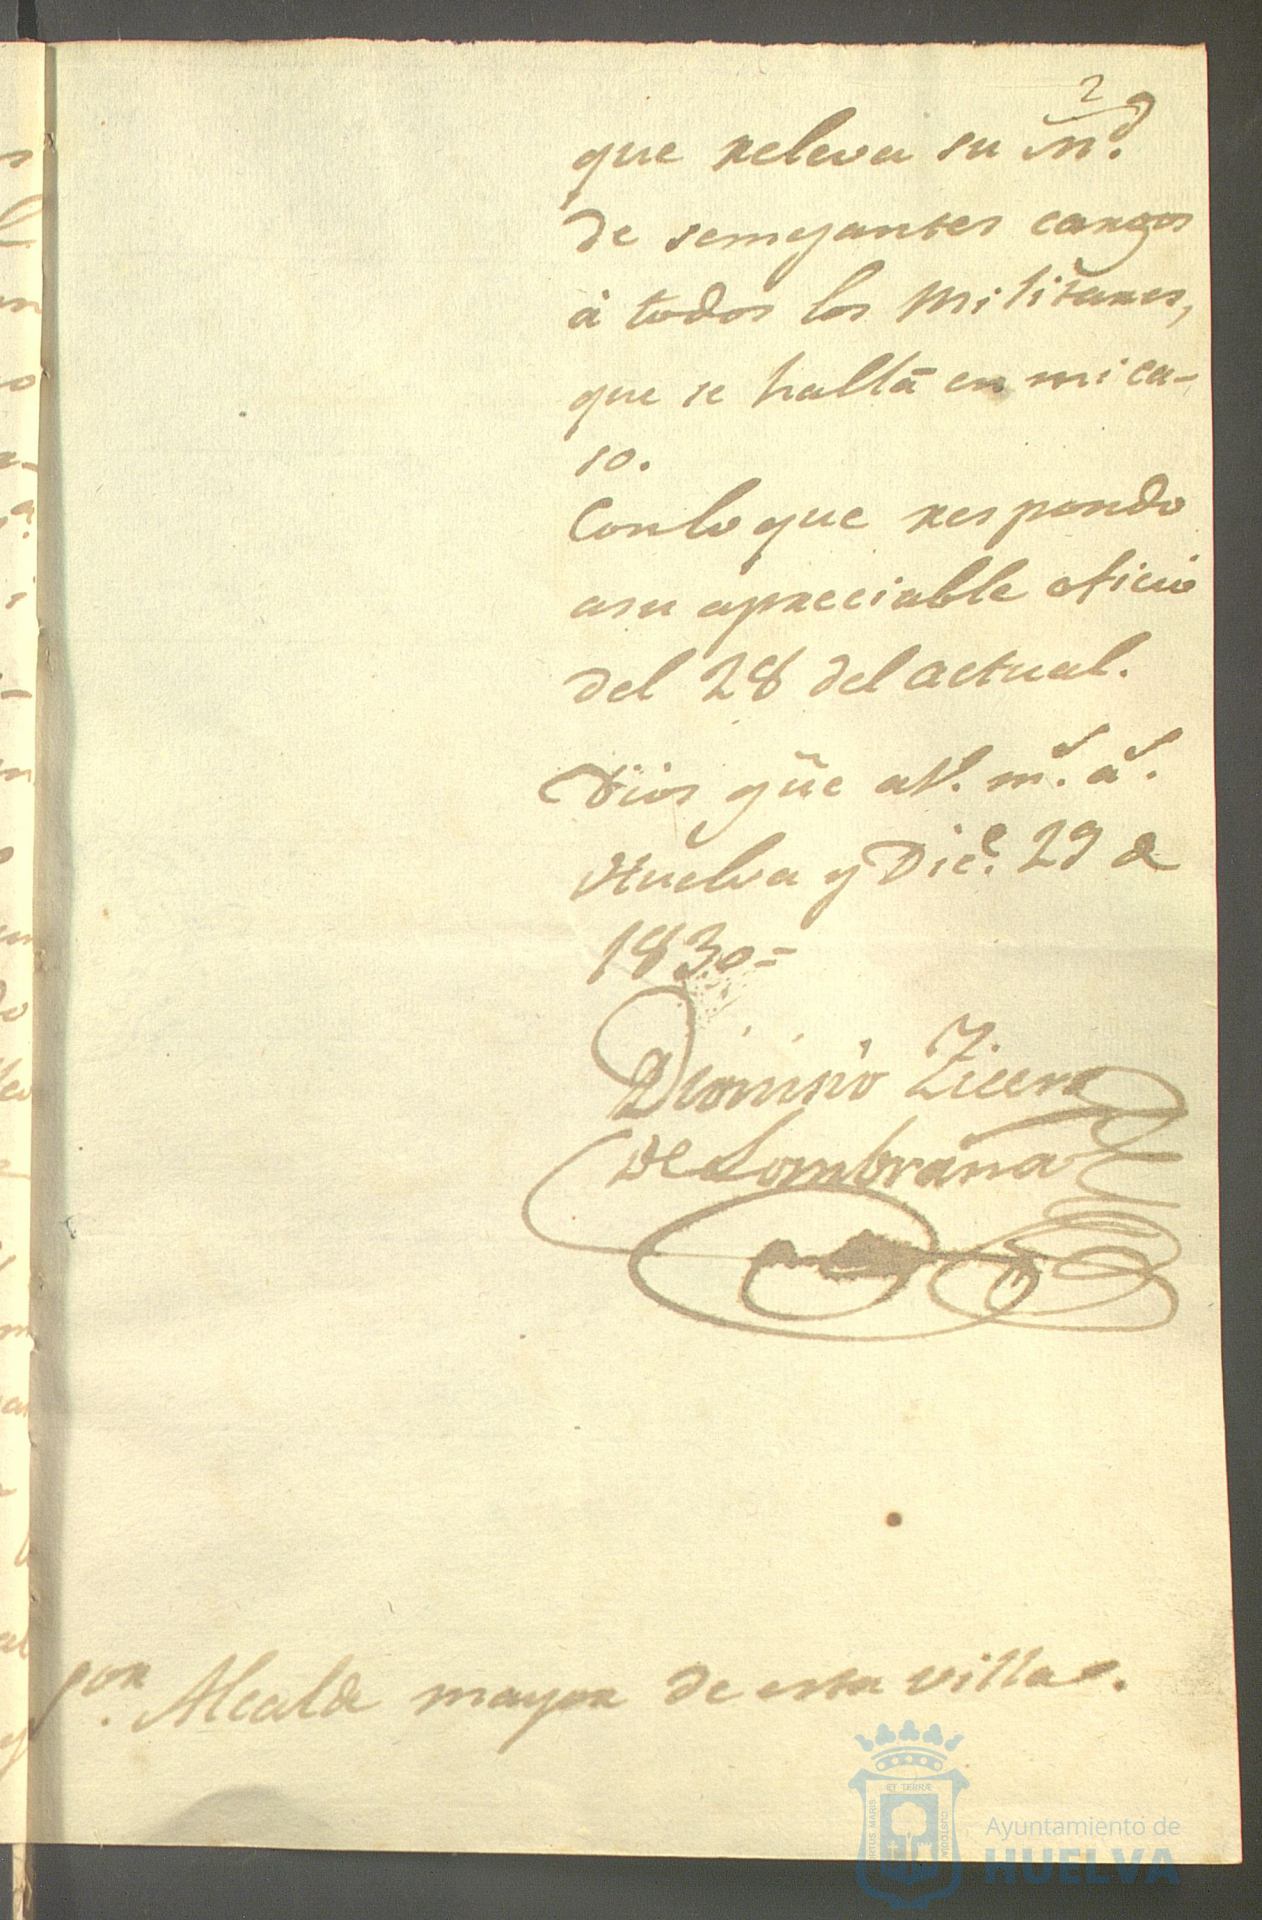 2
que releva su M.d
de semejantes cargos
à todos los Militares,
que se hallā en mi ca-
so.
Con lo que respondo
asu apreciable oficio
del 28 del actual.
Dios gũe aV. m.s a.s
Huelva y Dic.e 29 de
1830=
Dionisio
de Lombraña
S.or Alcalde mayor de esta villa.
ET TERRÆ
PORTUS MARIS
CUSTODIA
Ayuntamiento de
HUELVA